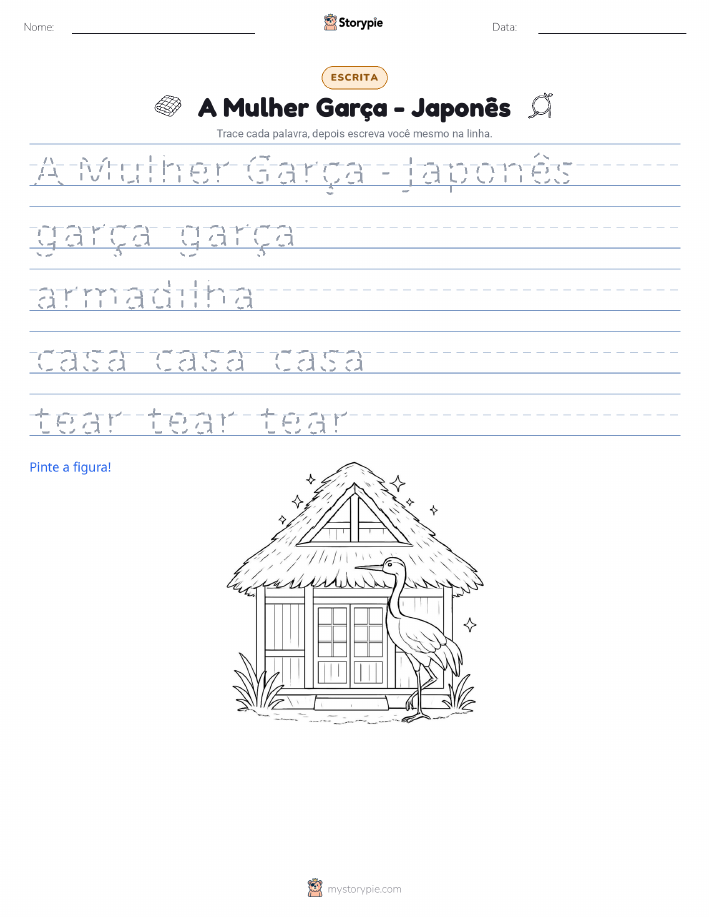 Nome:
Storypie
Data:
ESCRITA
A Mulher Garça - Japonês
Trace cada palavra, depois escreva você mesmo na linha.
A Mulher Garça - Japonês
garça garça
armadilha
casa casa casa
tear tear tear
Pinte a figura!
mystorypie.com